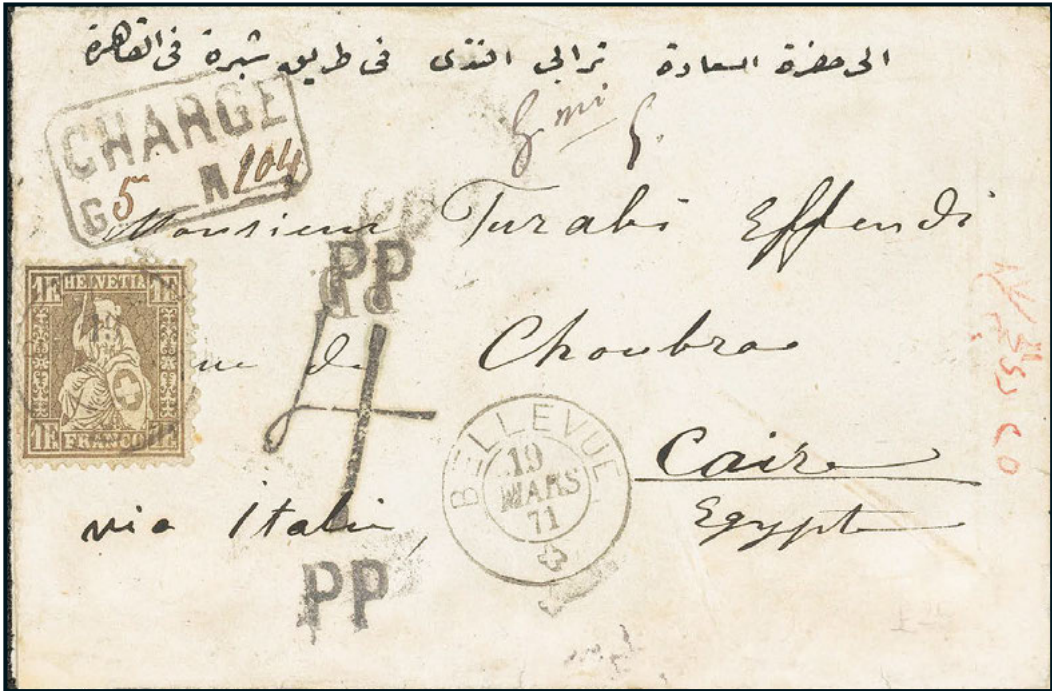 الى حضرة السعادة ترابى افندى فى طريق شبرة فى القاهرة
CHARGE
G 5 N 104
Monsieur Turabi Effendi
PP
PP
1F HELVETIA 1F
1F FRANCO 1F
4
de Choubra
BELLEVUE
19
MARS
71
Caire
Egypte
via Italie
PP